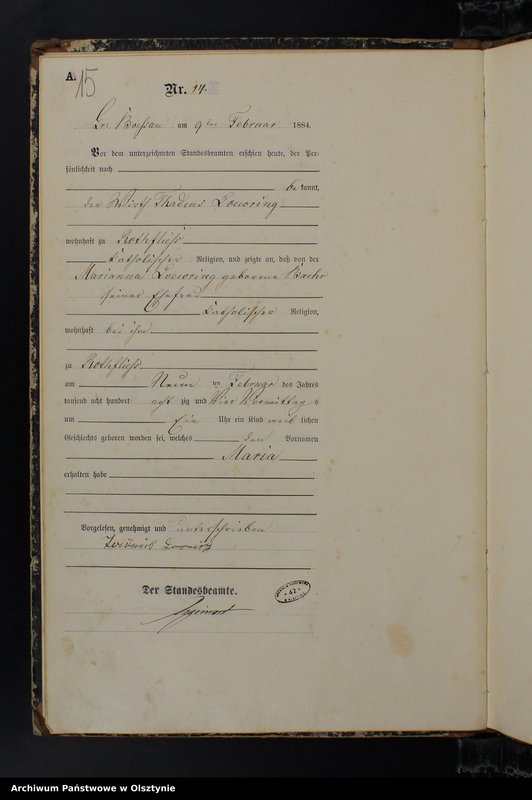 A.
15
Nr. 14.
Gr: Boeßau am 9ten Februar 1884.
Vor dem unterzeichneten Standesbeamten erschien heute, der Per-
sönlichkeit nach
be kannt,
der Wirth Thadeus Loewring
wohnhaft zu Rothfließ
katholischer Religion, und zeigte an, daß von der
Marianna Loewring geborene Baehr
seiner Ehefrau
katholischer Religion,
wohnhaft bei ihm
zu Rothfließ
am Neun ten Februar des Jahres
tausend acht hundert acht zig und Vier Vormittag s
um Ein Uhr ein Kind weib lichen
Geschlechts geboren worden sei, welches den Vornamen
Maria
erhalten habe
Vorgelesen, genehmigt und unterschrieben
Der Standesbeamte.
42
Archiwum Państwowe w Olsztynie